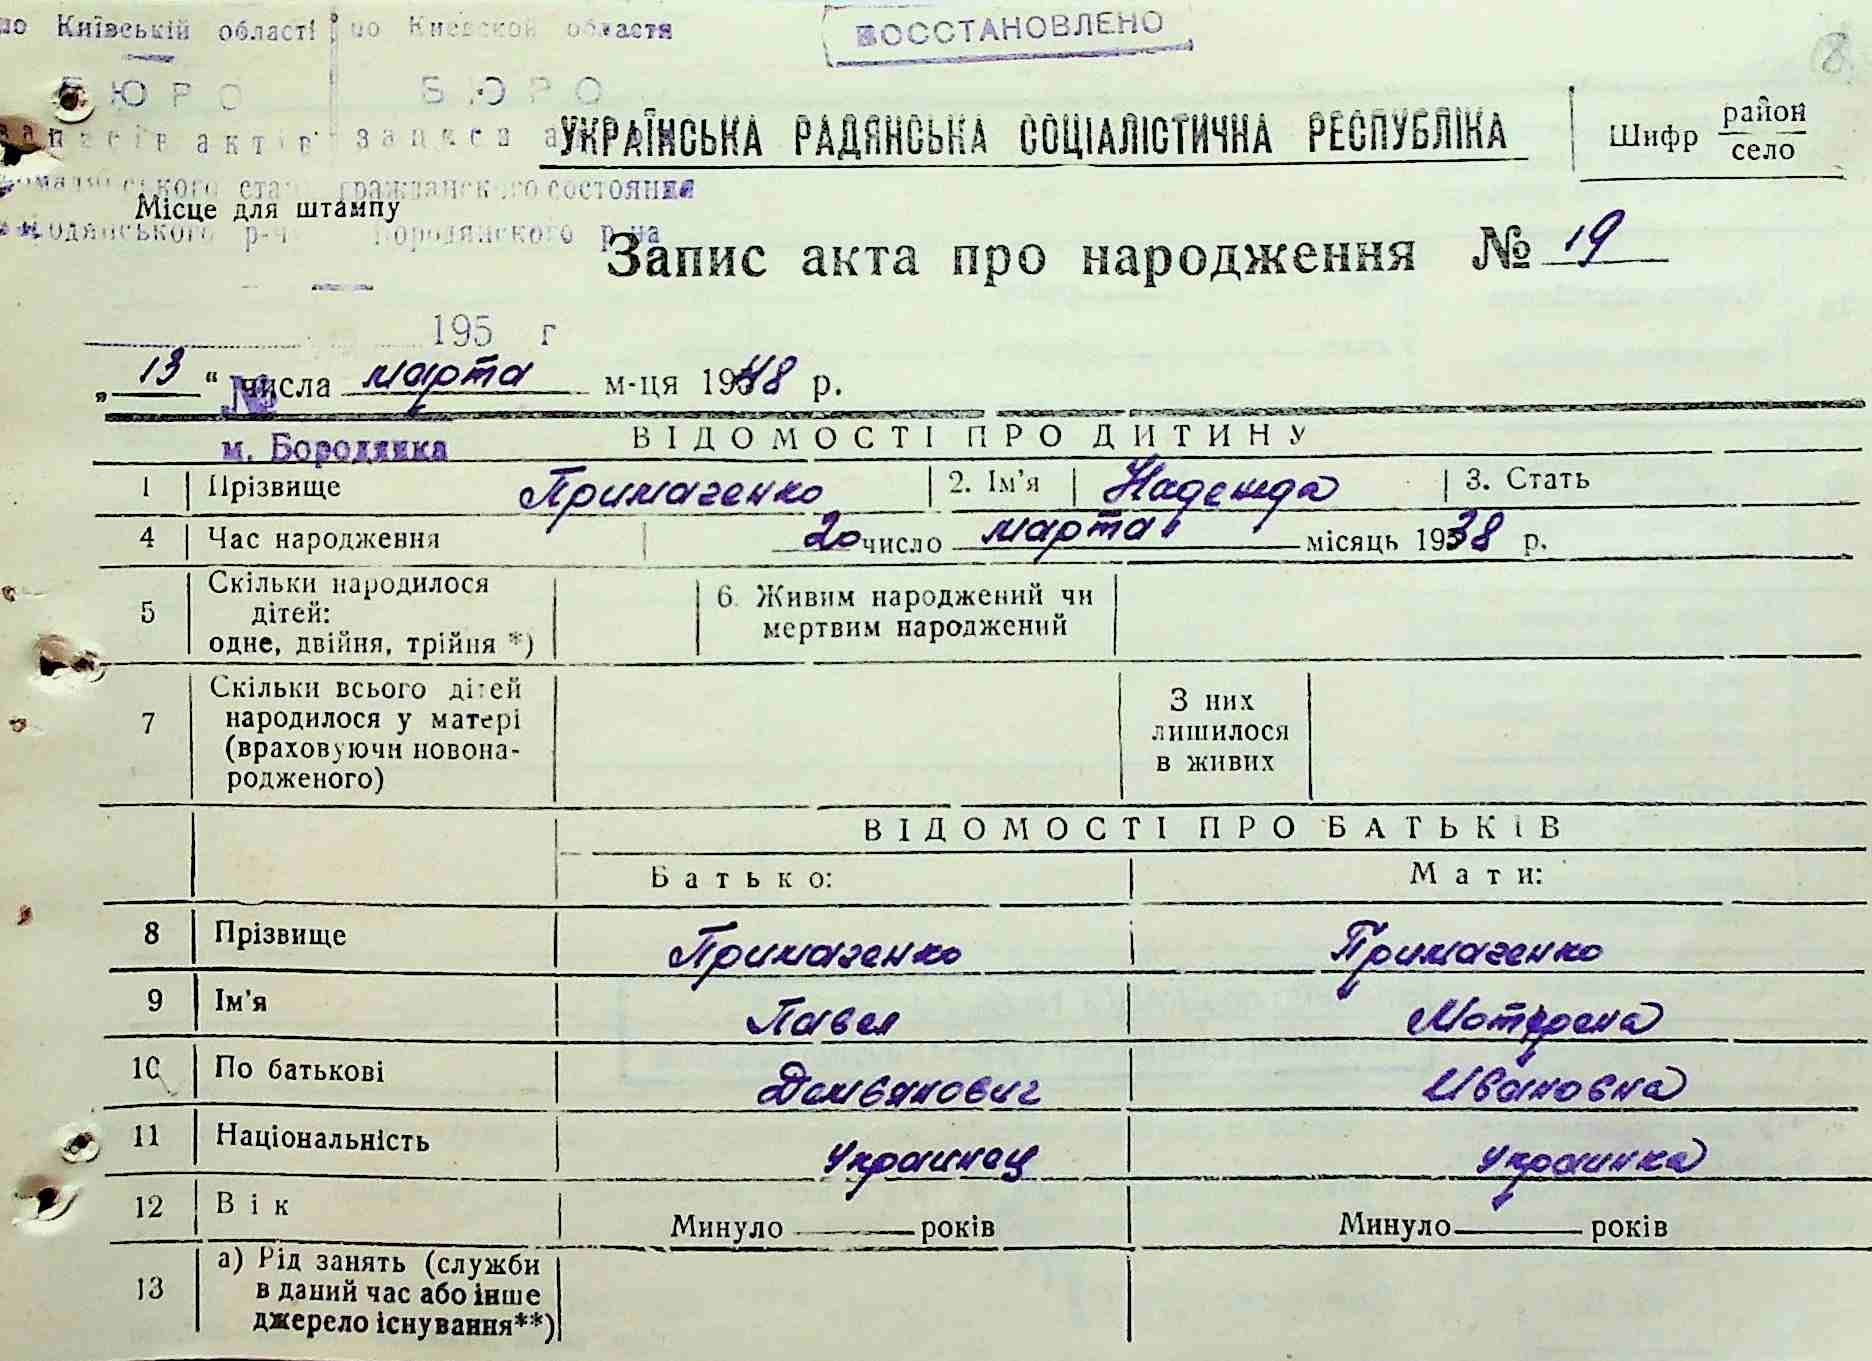 по Київській області по Киевской области
ВОССТАНОВЛЕНО
8
БЮРО БЮРО
записів актів записа а
УКРАЇНСЬКА РАДЯНСЬКА СОЦІАЛІСТИЧНА РЕСПУБЛІКА
Шифр район
село
громадянського стану гражданского состояния
Місце для штампу
Бородянського р-н Бородянского р на
Запис акта про народження № 19
195 г
„ 13 “ числа марта м-ця 1948 р.
№
м. Бородянка
ВІДОМОСТІ ПРО ДИТИНУ
1 Прізвище Примаченко 2. Ім'я Надежда 3. Стать
4 Час народження 20 число марта місяць 1938 р.
5 Скільки народилося
дітей:
одне, двійня, трійня *)
6. Живим народжений чи
мертвим народжений
7 Скільки всього дітей
народилося у матері
(враховуючи новона-
родженого)
З них
лишилося
в живих
ВІДОМОСТІ ПРО БАТЬКІВ
Батько: Мати:
8 Прізвище Примаченко Примаченко
9 Ім'я Павел Мотрена
10 По батькові Демьянович Ивановна
11 Національність украинец украинка
12 Вік Минуло років Минуло років
13 а) Рід занять (служби
в даний час або інше
джерело існування**)